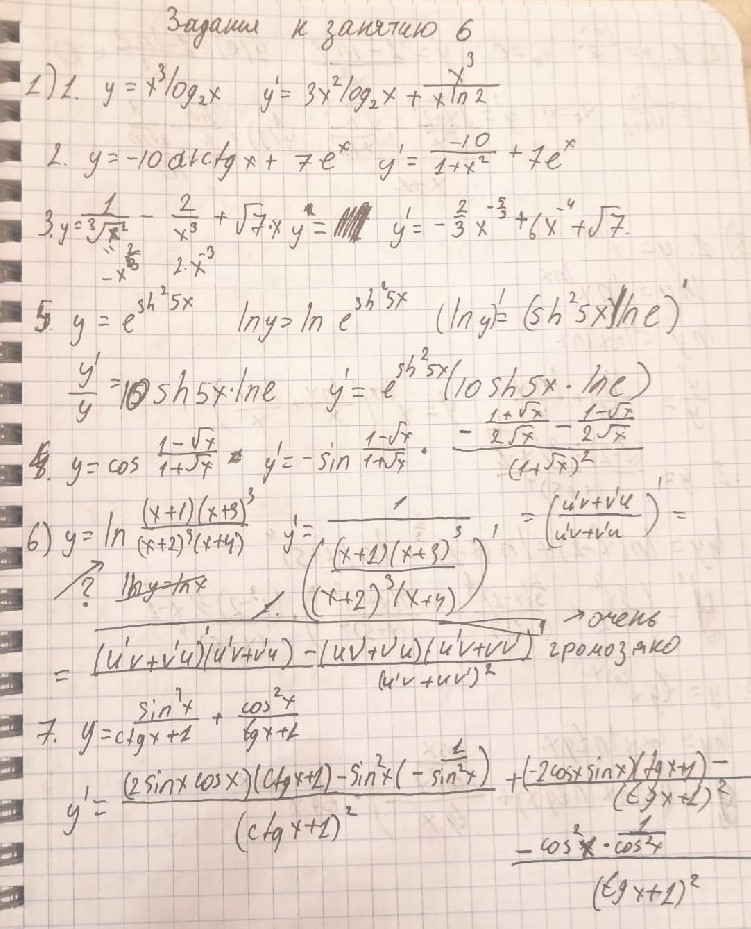 Задания к занятию 6
1) 1. y = x³log₂x y' = 3x²log₂x + x³/(x ln 2)
2. y = -10 arcctg x + 7eˣ y' = -10/(1+x²) + 7eˣ
3. y = 1/∛x² - 2/x³ + √7·x y' = y' = -2/3 x^(-5/3) + 6x⁻⁴ + √7.
-x^(2/3) 2·x⁻³
5. y = e^(sh²5x) ln y = ln e^(sh²5x) (ln y)' = (sh²5x ln e)'
y'/y = 10 sh5x·ln e y' = e^(sh²5x) (10 sh5x · ln e)
4. y = cos (1-√x)/(1+√x) y' = -sin (1-√x)/(1+√x) · (- (1+√x)/(2√x) - (1-√x)/(2√x))/(1+√x)²
6) y = ln ((x+1)(x+3)³)/((x+2)³(x+4)) y' = 1/(((x+1)(x+3)³)/((x+2)³(x+4)))' = ((u'v+v'u)/(u'v+v'u))' =
? ln y = ln x
= ((u'v+v'u)'(u'v+v'u) - (uv'+v'u)(u'v+vv')')/(u'v+uv')² → очень
громозяко
7. y = sin²x/(ctgx+1) + cos²x/(tgx+1)
y' = ((2sinx cosx)(ctgx+1) - sin²x(-1/sin²x))/(ctgx+1)² + (-2cosx sinx)(tgx+1) - /(tgx+1)²
(- cos²x · 1/cos²x)/(tgx+1)²